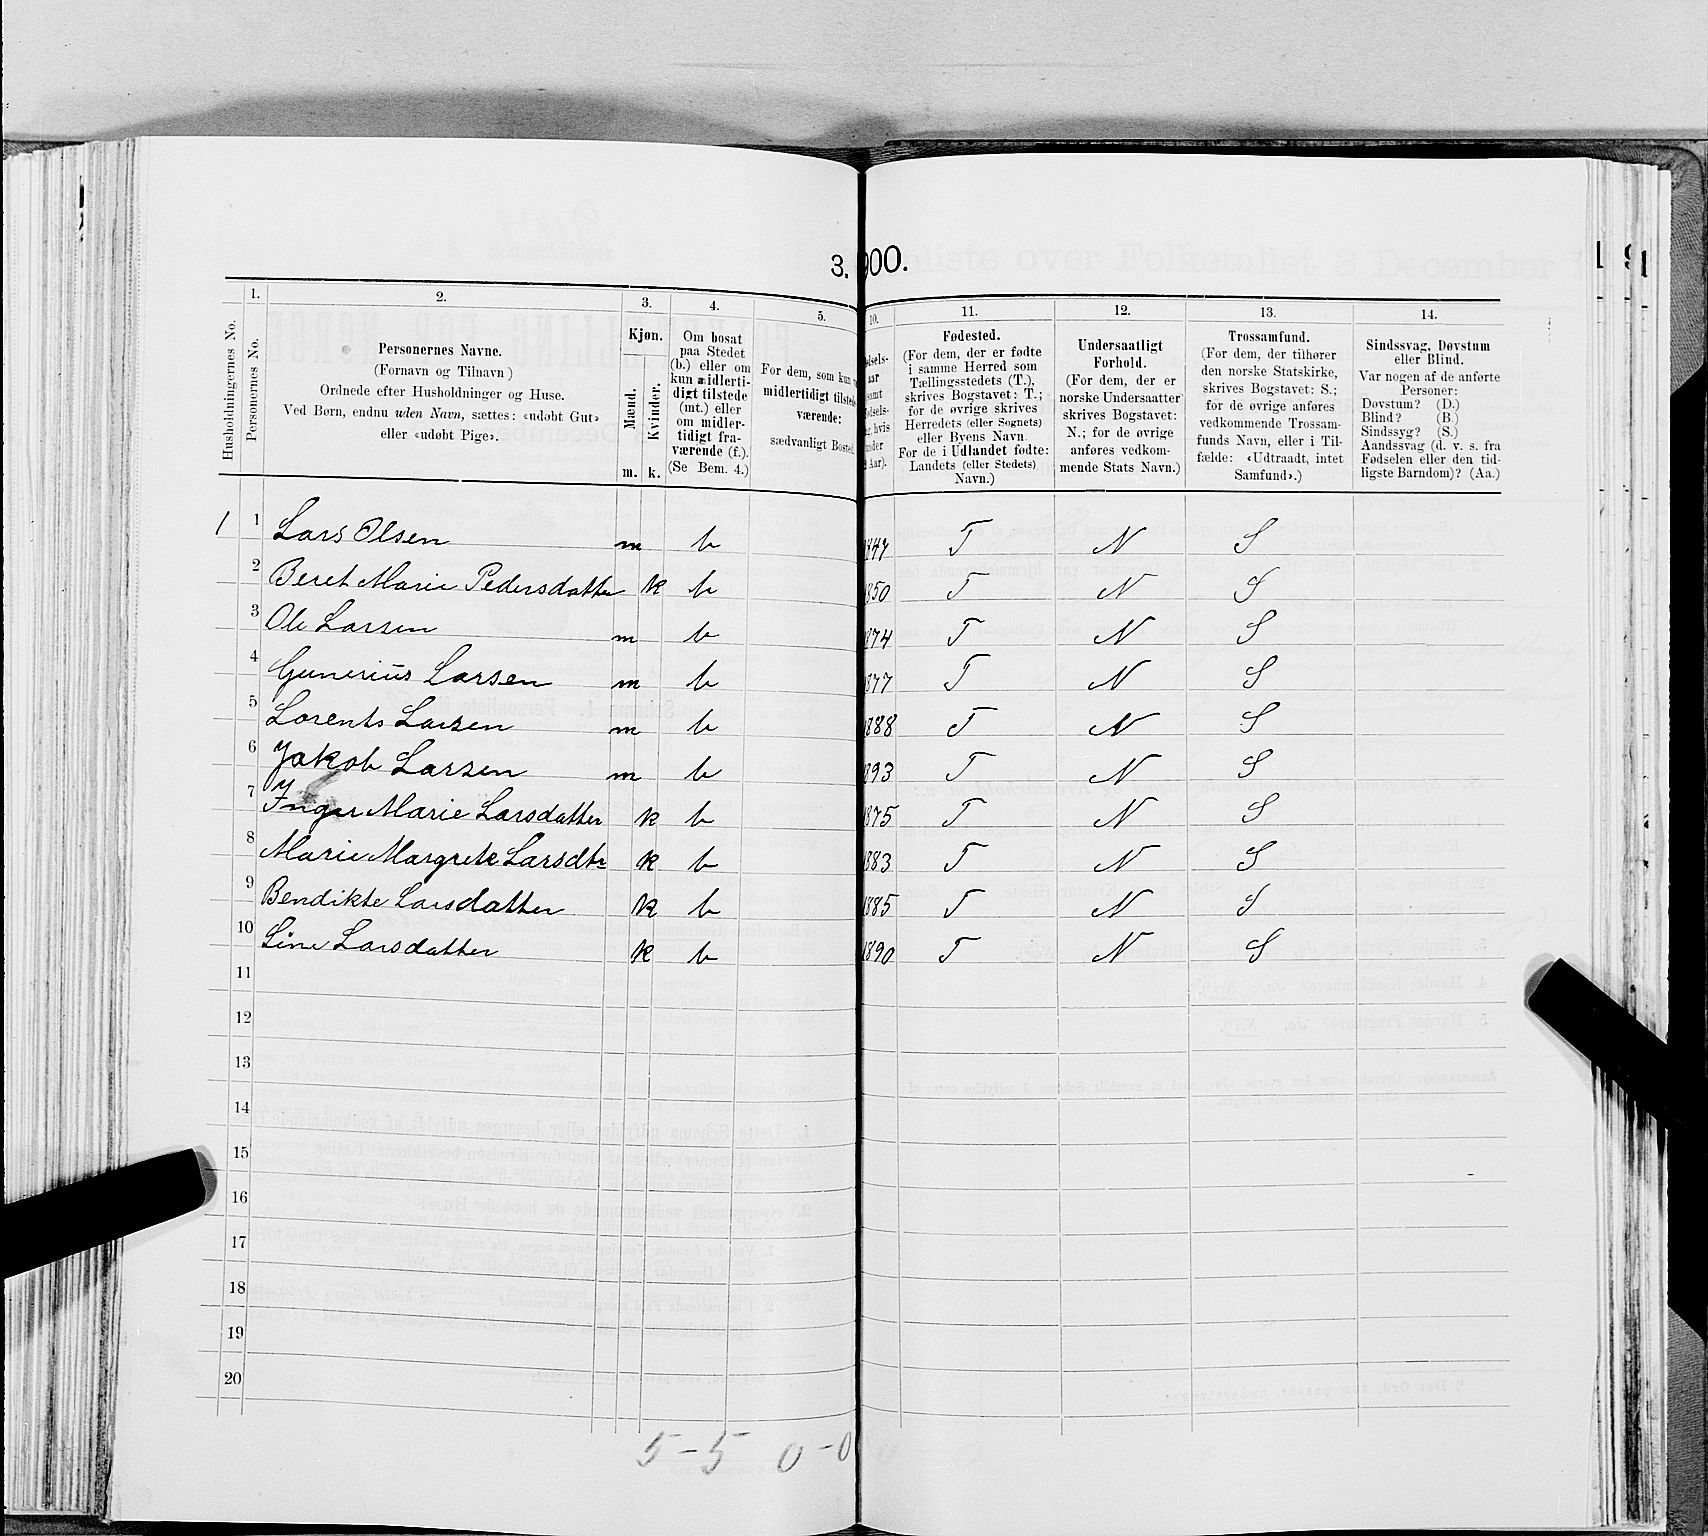 3. 900.
1. 2. 3. 4. 5. 10. 11. 12. 13. 14.
Husholdningernes No.
Personernes No.
Personernes Navne.
(Fornavn og Tilnavn)
Ordnede efter Husholdninger og Huse.
Ved Børn, endnu uden Navn, sættes: «udøbt Gut»
eller «udøbt Pige».
Kjøn.
Mænd.
Kvinder.
m. k.
Om bosat
paa Stedet
(b.) eller om
kun midlerti-
digt tilstede
(mt.) eller
om midler-
tidigt fra-
værende (f.).
(Se Bem. 4.)
For dem, som kun
midlertidigt tilstede-
værende:
sædvanligt Bosted
ødsels-
aar
samt
ødsels-
hvis
under
Aar).
Fødested.
(For dem, der er fødte
i samme Herred som
Tællingsstedets (T.),
skrives Bogstavet: T.;
for de øvrige skrives
Herredets (eller Sognets)
eller Byens Navn.
For de i Udlandet fødte:
Landets (eller Stedets)
Navn.)
Undersaatligt
Forhold.
(For dem, der er
norske Undersaatter
skrives Bogstavet:
N.; for de øvrige
anføres vedkom-
mende Stats Navn.)
Trossamfund.
(For dem, der tilhører
den norske Statskirke,
skrives Bogstavet: S.;
for de øvrige anføres
vedkommende Trossam-
funds Navn, eller i Til-
fælde: «Udtraadt, intet
Samfund».)
Sindssvag, Døvstum
eller Blind.
Var nogen af de anførte
Personer:
Døvstum? (D.)
Blind? (B.)
Sindssyg? (S.)
Aandssvag (d. v. s. fra
Fødselen eller den tid-
ligste Barndom)? (Aa.)
1 1 Lars Olsen m b 1847 T N S
2 Beret Marie Pedersdatter k b 1850 T N S
3 Ole Larsen m b 1874 T N S
4 Gunerius Larsen m b 1877 T N S
5 Lorents Larsen m b 1888 T N S
6 Jakob Larsen m b 1893 T N S
7 Inger Marie Larsdatter k b 1875 T N S
8 Marie Margrete Larsdtr k b 1883 T N S
9 Bendikte Larsdatter k b 1885 T N S
10 Line Larsdatter k b 1890 T N S
11
12
13
14
15
16
17
18
19
20
5 - 5 0 - 0